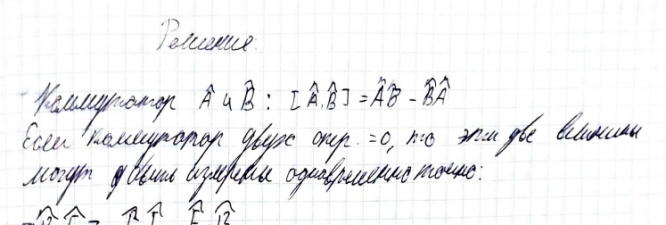 Решение.
Коммутатор Â и B̂ : [Â,B̂] = ÂB̂ - B̂Â
Если коммутатор двух опер. =0, то эти две величины
могут быть измерены одновременно точно: